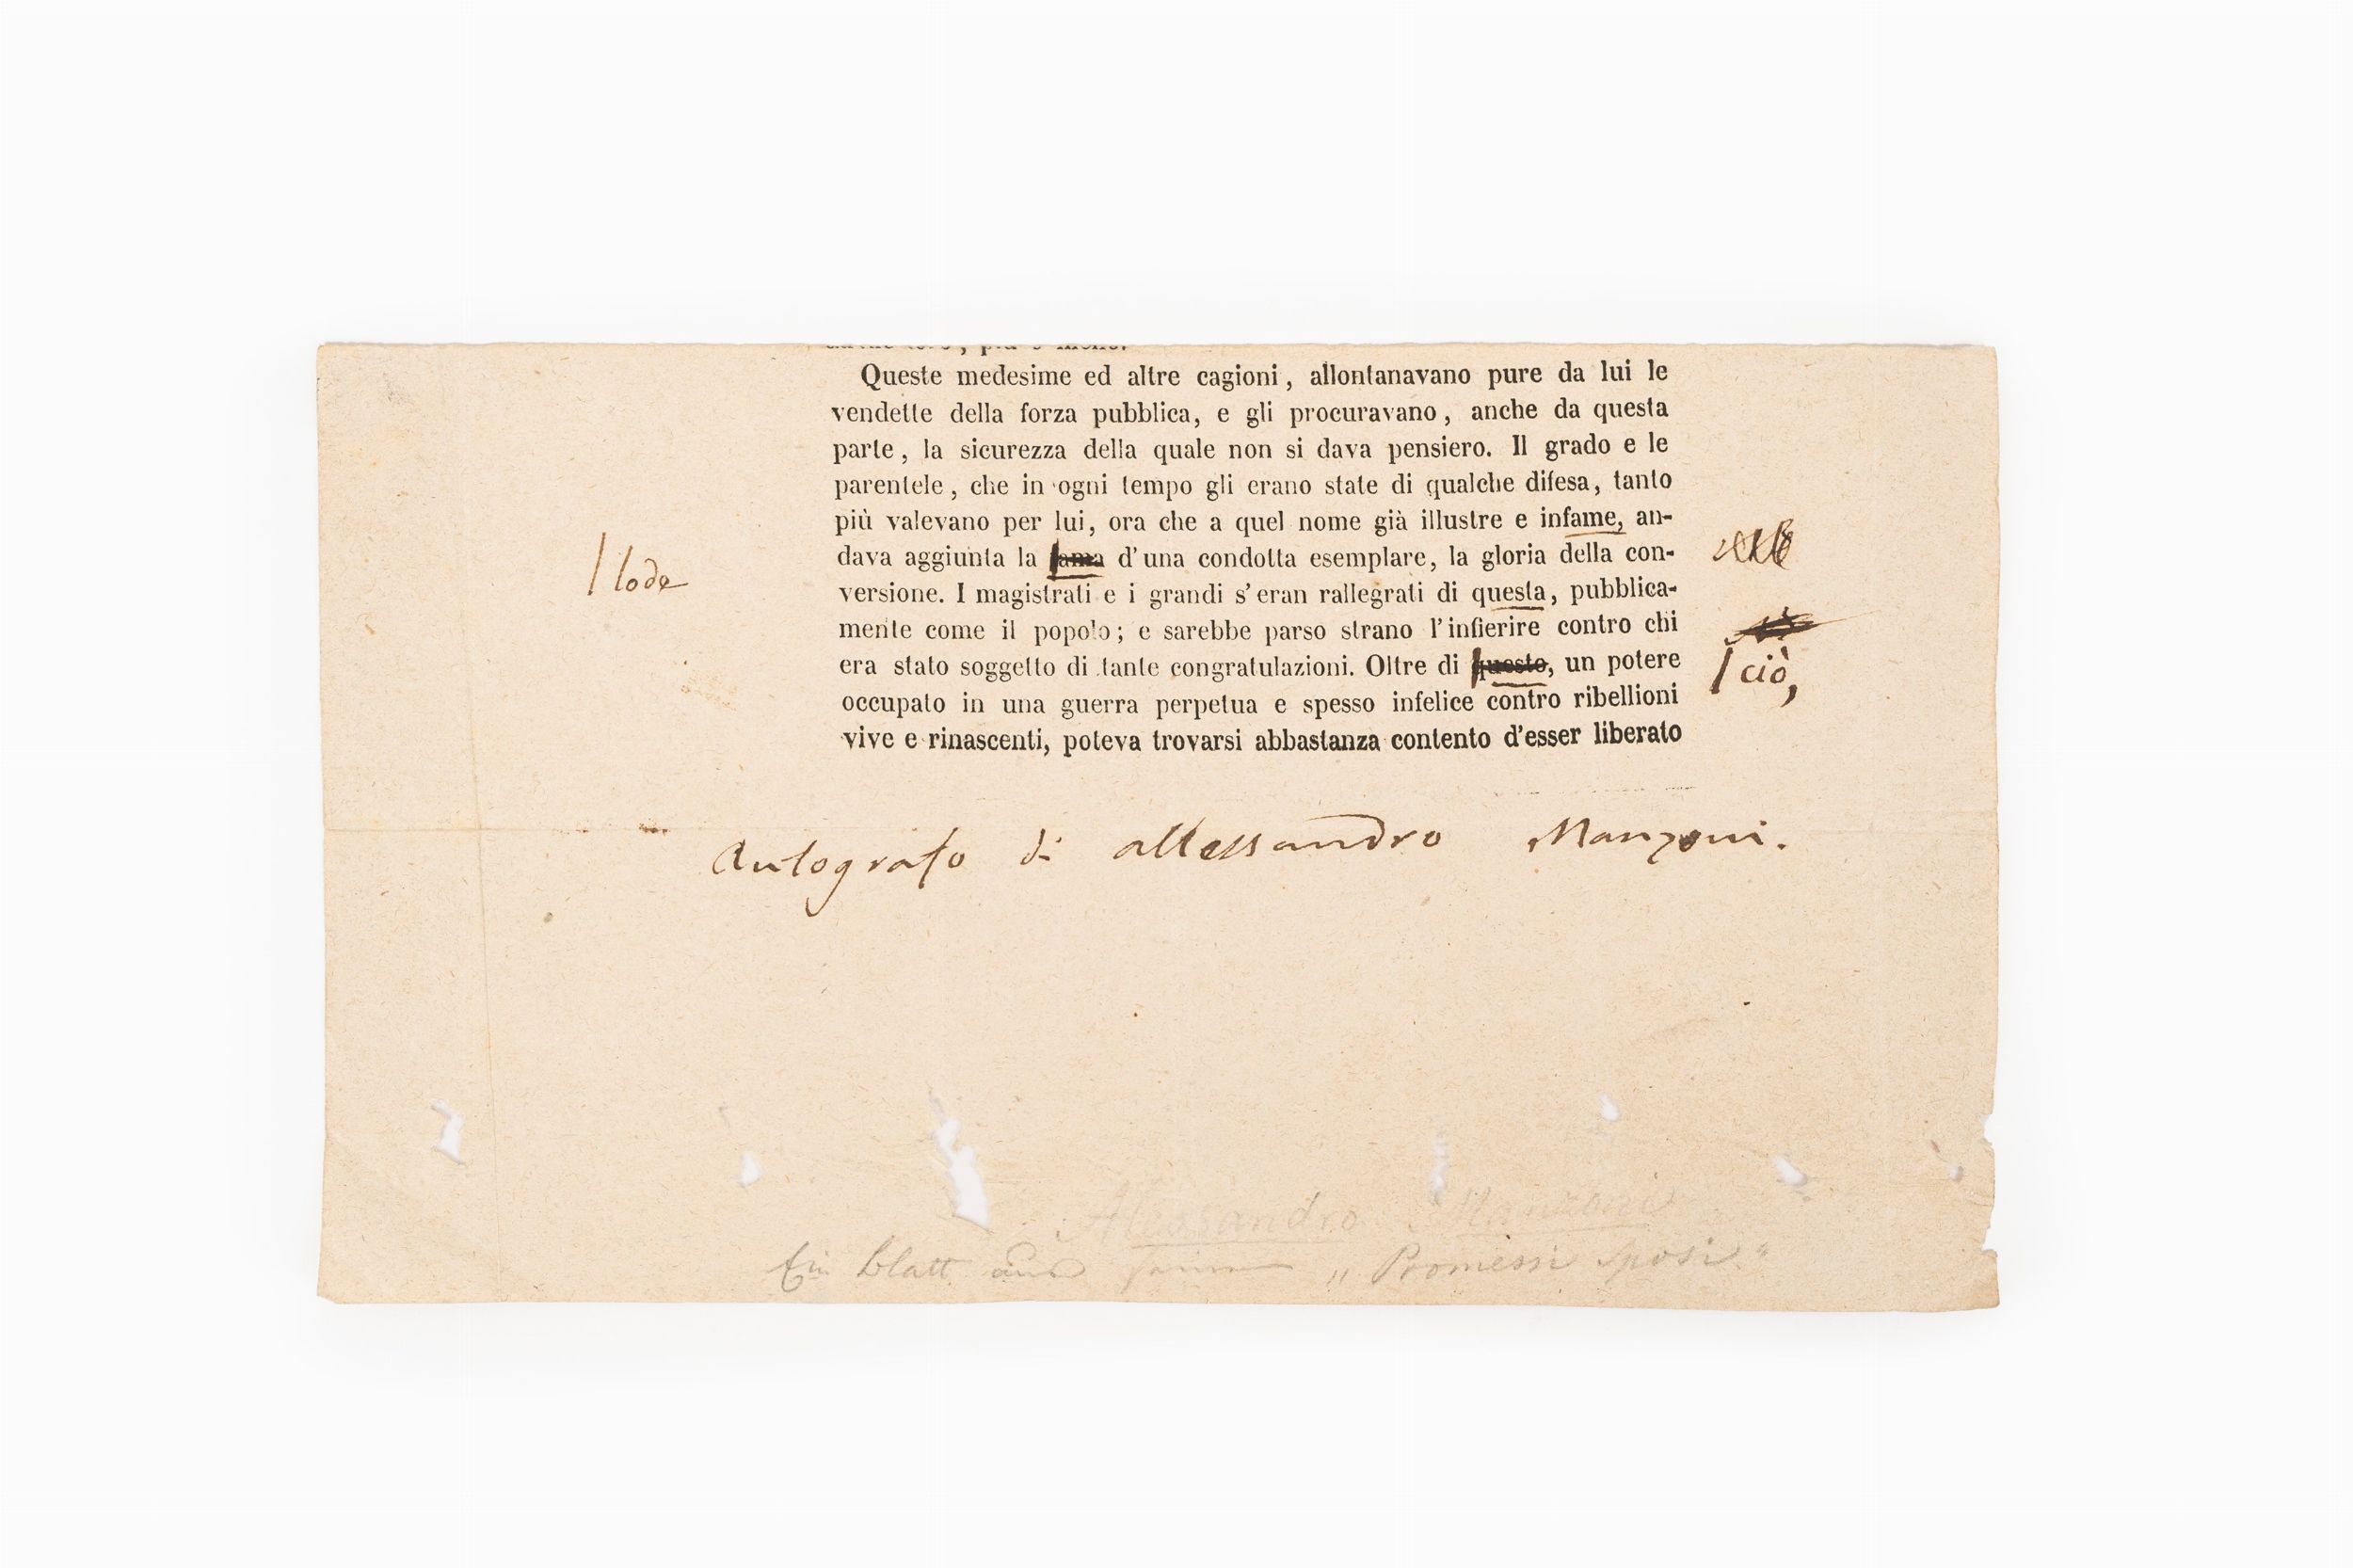 Queste medesime ed altre cagioni, allontanavano pure da lui le
vendette della forza pubblica, e gli procuravano, anche da questa
parte, la sicurezza della quale non si dava pensiero. Il grado e le
parentele, che in ogni tempo gli erano state di qualche difesa, tanto
più valevano per lui, ora che a quel nome già illustre e infame, an-
dava aggiunta la fama d'una condotta esemplare, la gloria della con-
lode
versione. I magistrati e i grandi s'eran rallegrati di questa, pubblica-
mente come il popolo; e sarebbe parso strano l'infierire contro chi
era stato soggetto di tante congratulazioni. Oltre di questo, un potere
ciò,
occupato in una guerra perpetua e spesso infelice contro ribellioni
vive e rinascenti, poteva trovarsi abbastanza contento d'esser liberato
Autografo di Allessandro Manzoni.
Alessandro Manzoni
Ein Blatt aus seinen „Promessi Sposi“